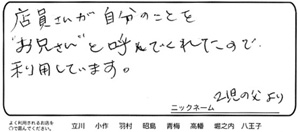 店員さんが自分のことを
"お兄さん"と呼んでくれたので
利用しています。
ニックネーム 2児の父より
よく利用されるお店を
○で囲んでください。 立川 小作 羽村 昭島 青梅 高幡 堀之内 八王子